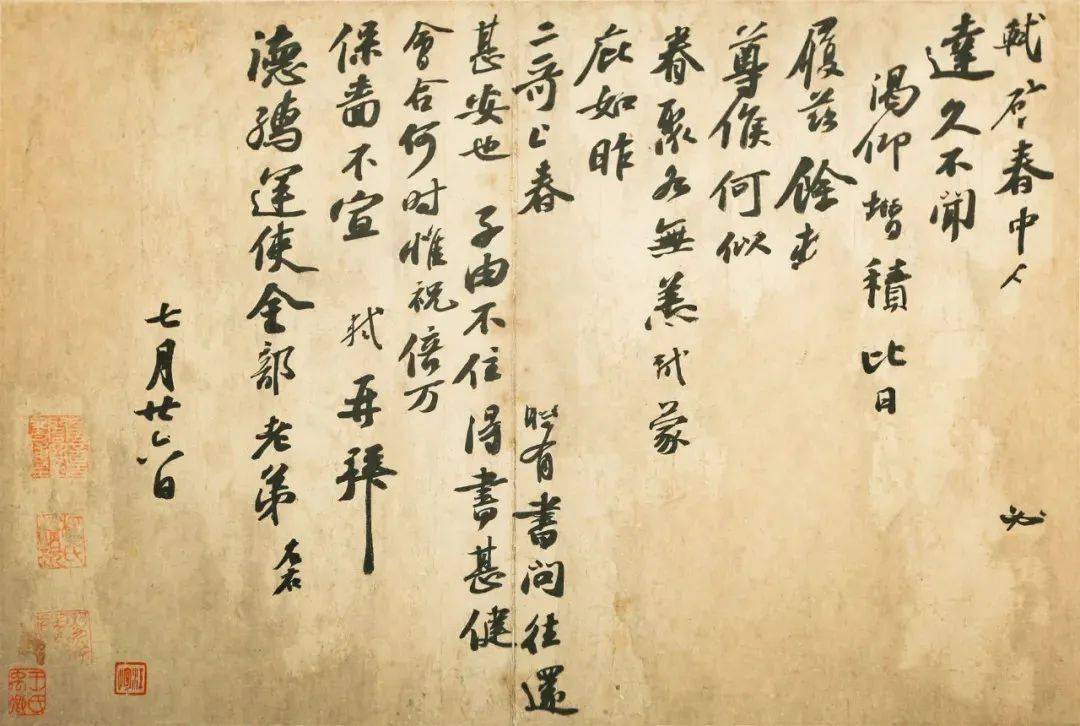 軾啓春中必
達久不聞
渴仰增積比日
履茲餘
尊候何似
眷聚各無恙軾蒙
庇如昨
二哥上春有書問往還
甚安也子由不住得書甚健
會合何时惟祝倍万
保嗇不宣軾再拜
德孺運使金部老弟
七月廿六日